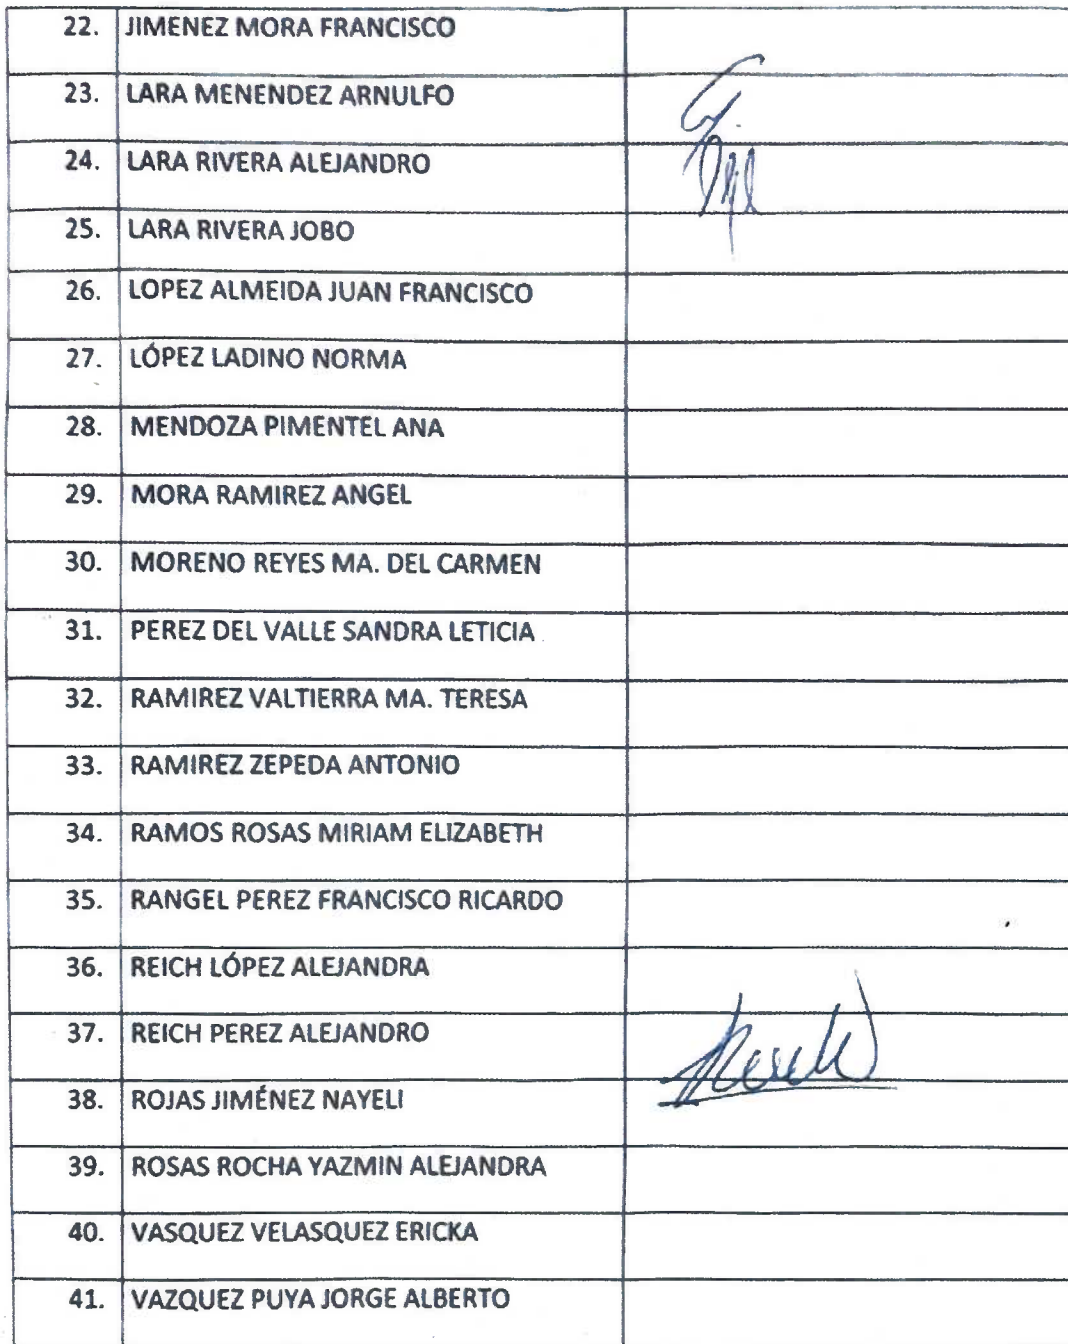 22. JIMENEZ MORA FRANCISCO
23. LARA MENENDEZ ARNULFO
24. LARA RIVERA ALEJANDRO
25. LARA RIVERA JOBO
26. LOPEZ ALMEIDA JUAN FRANCISCO
27. LÓPEZ LADINO NORMA
28. MENDOZA PIMENTEL ANA
29. MORA RAMIREZ ANGEL
30. MORENO REYES MA. DEL CARMEN
31. PEREZ DEL VALLE SANDRA LETICIA
32. RAMIREZ VALTIERRA MA. TERESA
33. RAMIREZ ZEPEDA ANTONIO
34. RAMOS ROSAS MIRIAM ELIZABETH
35. RANGEL PEREZ FRANCISCO RICARDO
36. REICH LÓPEZ ALEJANDRA
37. REICH PEREZ ALEJANDRO
38. ROJAS JIMÉNEZ NAYELI
39. ROSAS ROCHA YAZMIN ALEJANDRA
40. VASQUEZ VELASQUEZ ERICKA
41. VAZQUEZ PUYA JORGE ALBERTO